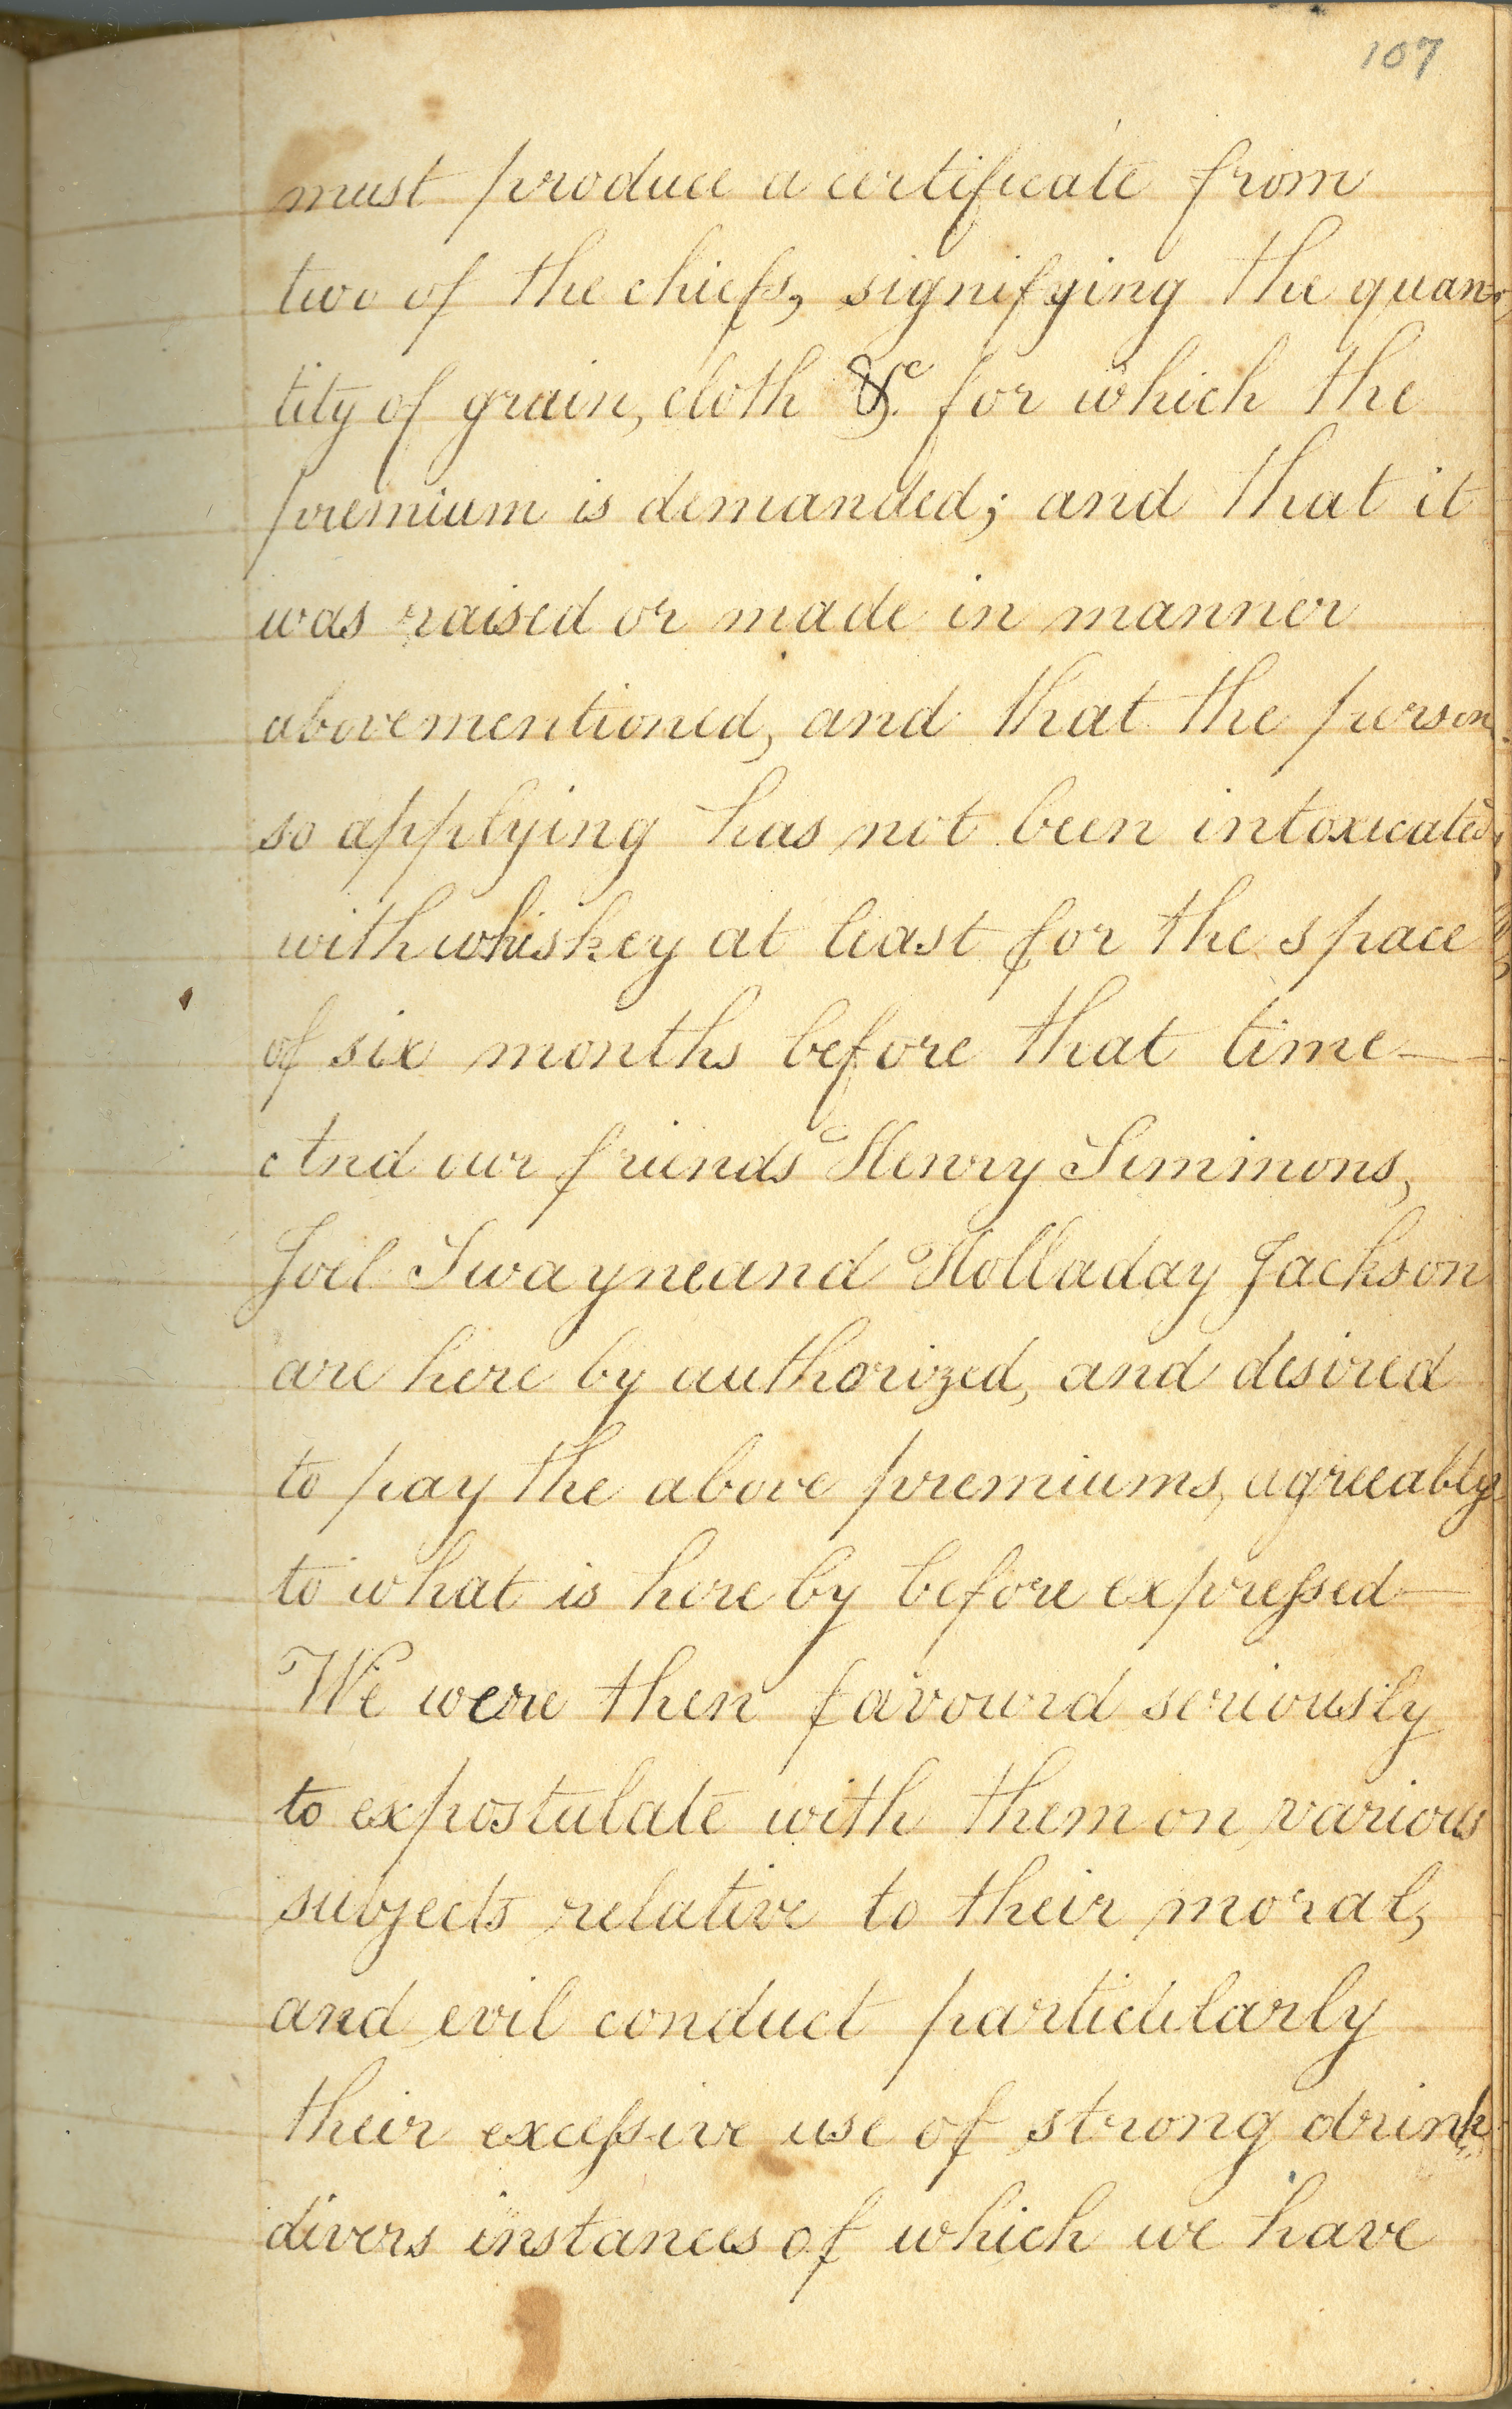 107
must produce a certificate from
two of the chiefs, signifying the quan-
tity of grain, cloth &c. for which the
premium is demanded; and that it
was raised or made in manner
abovementioned, and that the person
so applying has not been intoxicated,
with whiskey at least for the space
of six months before that time—
And our friends Henry Simmons,
Joel Swayne and Holladay Jackson
are here by authorized, and desired
to pay the above premiums, agreeably
to what is here by before expressed—
We were then favourd seriously
to expostulate with them on various
subjects relative to their moral,
and evil conduct particularly
their excessive use of strong drink
divers instances of which we have